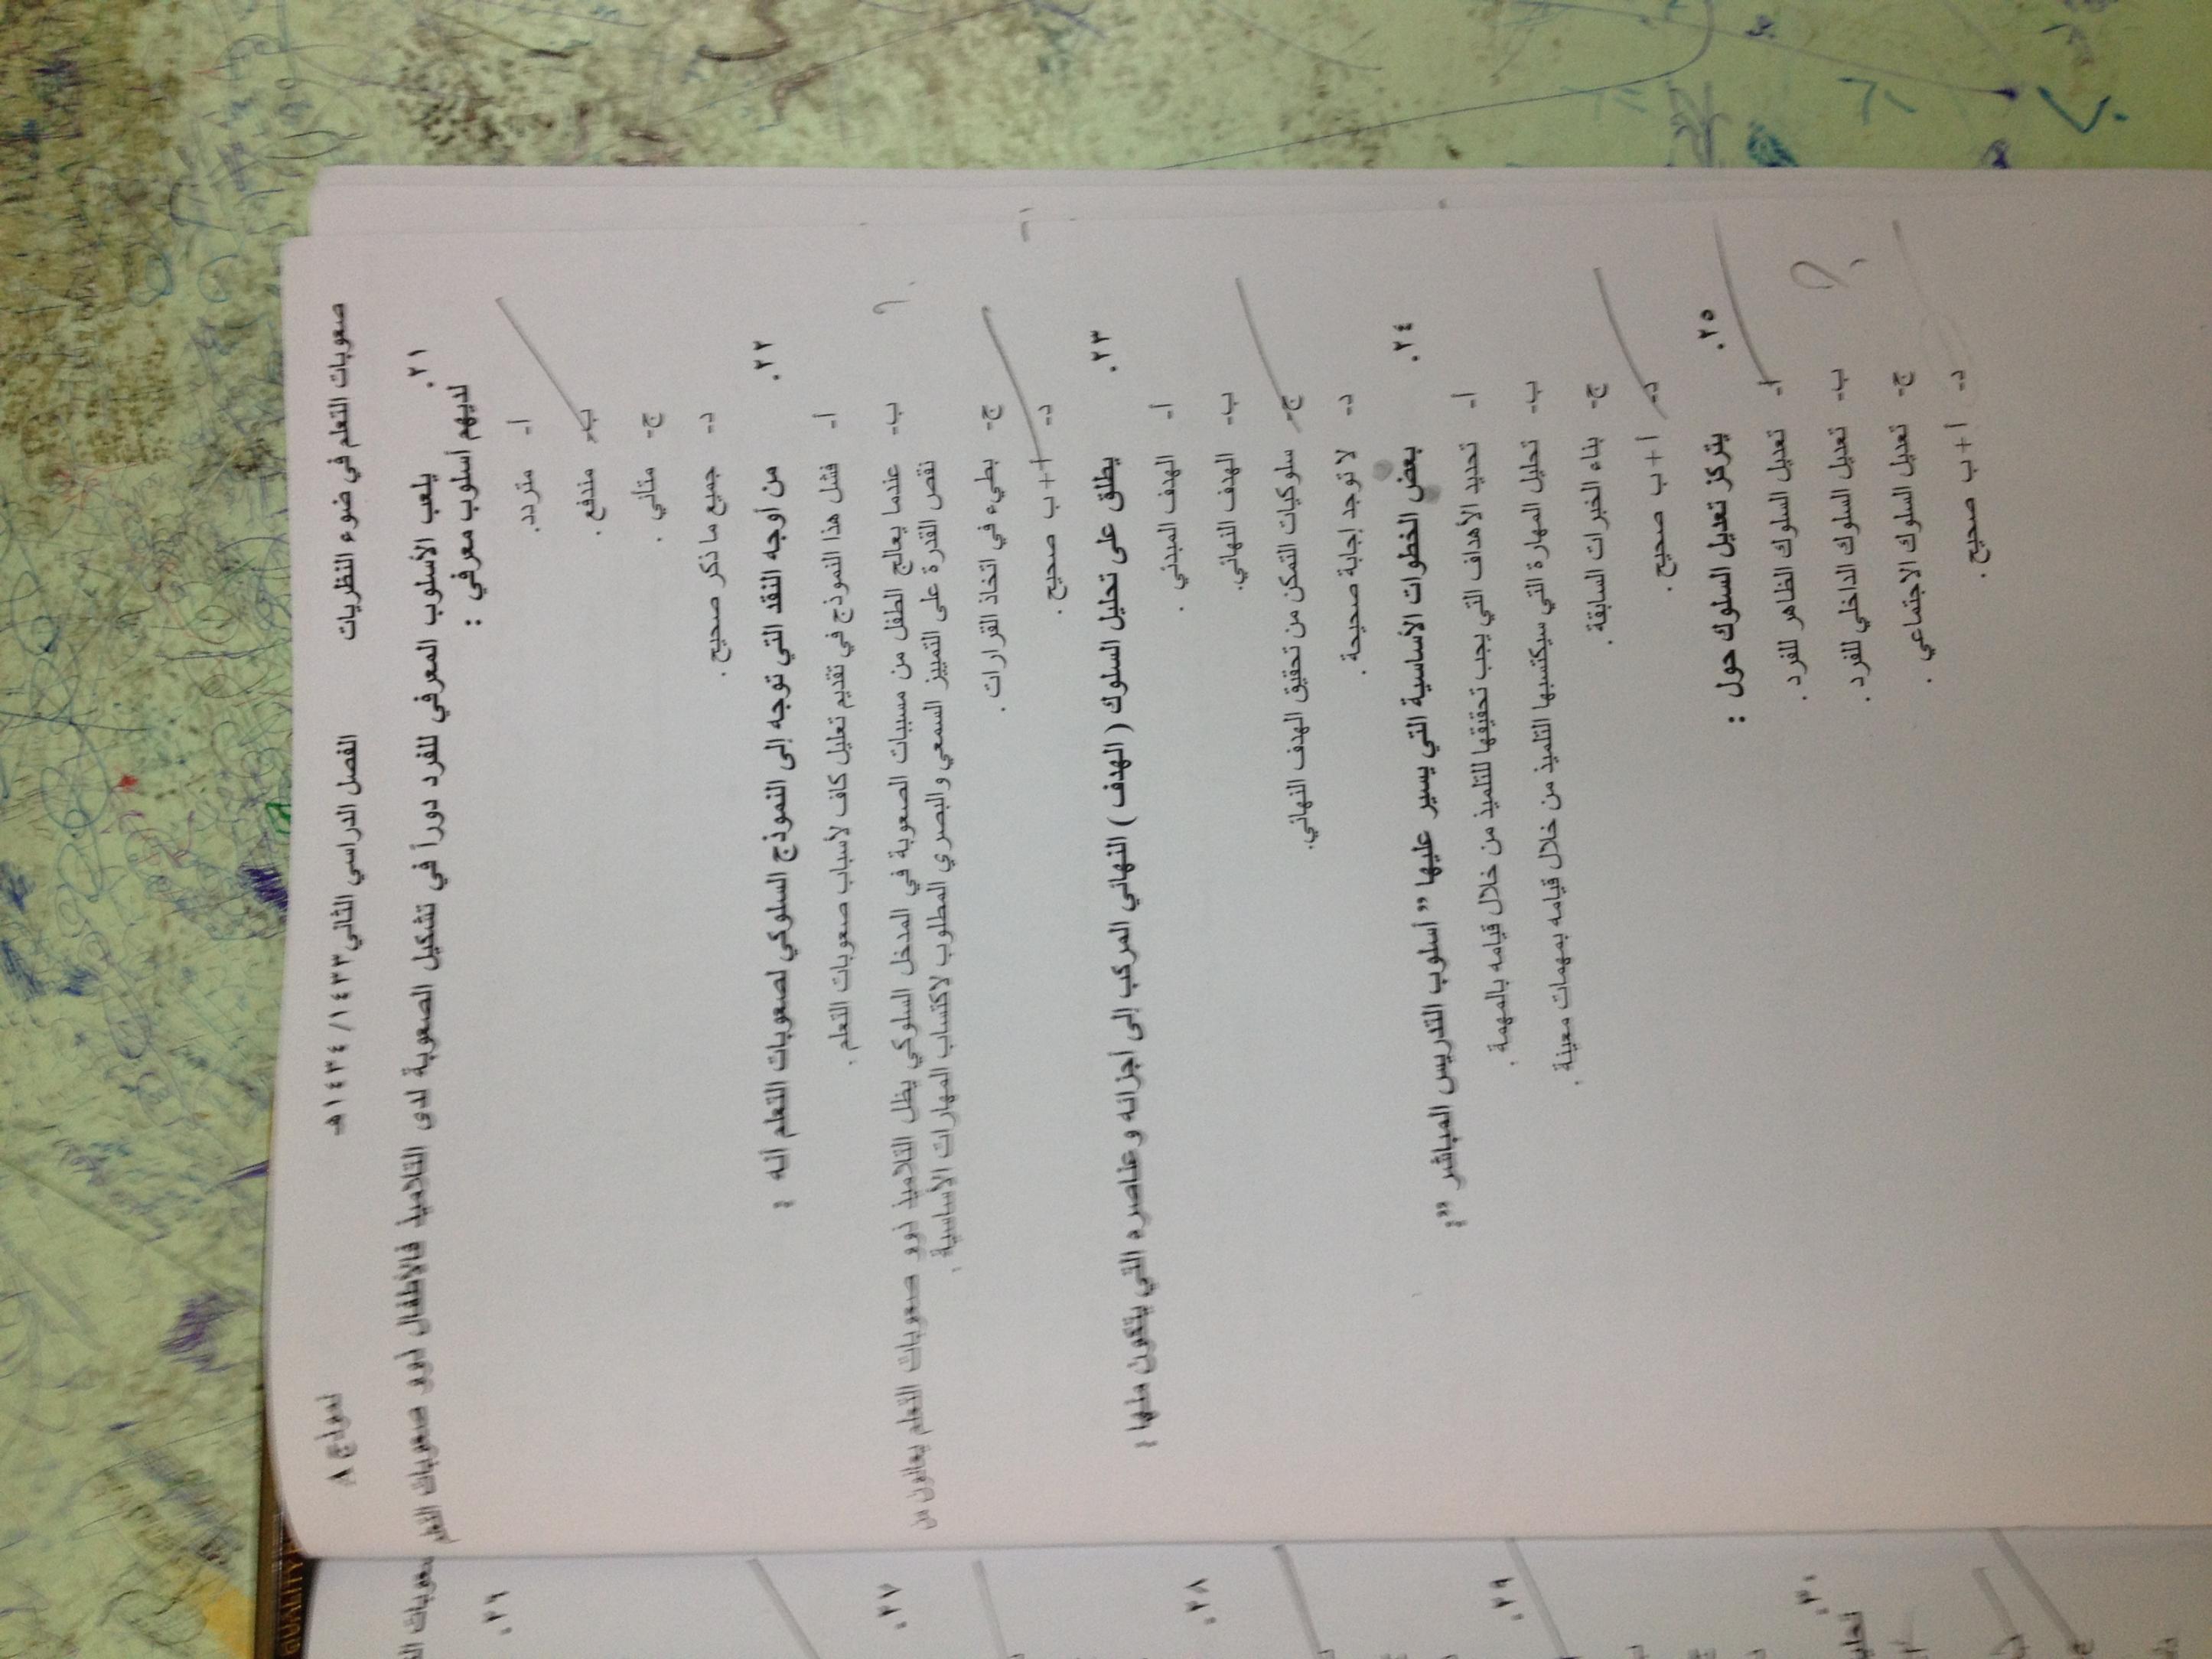 صعوبات التعلم في ضوء النظريات الفصل الدراسي الثاني ١٤٣٣/ ١٤٣٤هـ نموذج ٨
٢١. يلعب الأسلوب المعرفي للفرد دوراً في تشكيل الصعوبة لدى التلاميذ فالأطفال ذوو صعوبات التعلم
لديهم أسلوب معرفي :
أ- متردد.
ب- مندفع .
ج- متأني .
د- جميع ما ذكر صحيح .
٢٢. من أوجه النقد التي توجه إلى النموذج السلوكي لصعوبات التعلم انه :
أ- فشل هذا النموذج في تقديم تعليل كاف لأسباب صعوبات التعلم .
ب- عندما يعالج الطفل من مسببات الصعوبة في المدخل السلوكي يظل التلاميذ ذوو صعوبات التعلم يعانون من
نقص القدرة على التمييز السمعي والبصري المطلوب لاكتساب المهارات الأساسية .
ج- بطيء في اتخاذ القرارات .
د- أ + ب صحيح .
٢٣. يطلق على تحليل السلوك ( الهدف ) النهائي المركب إلى أجزائه وعناصره التي يتكون منها :
أ- الهدف المبدئي .
ب- الهدف النهائي.
ج- سلوكيات التمكن من تحقيق الهدف النهائي.
د- لا توجد إجابة صحيحة .
٢٤. بعض الخطوات الأساسية التي يسير عليها " أسلوب التدريس المباشر ":
أ- تحديد الأهداف التي يجب تحقيقها للتلميذ من خلال قيامه بالمهمة .
ب- تحليل المهارة التي سيكتسبها التلميذ من خلال قيامه بمهمات معينة .
ج- بناء الخبرات السابقة .
د- أ + ب صحيح .
٢٥. يتركز تعديل السلوك حول :
أ- تعديل السلوك الظاهر للفرد .
ب- تعديل السلوك الداخلي للفرد .
ج- تعديل السلوك الاجتماعي .
د- أ + ب صحيح .
؟
٢٦.
٢٧.
٢٨.
٢٩.
٣٠.
QUALITY